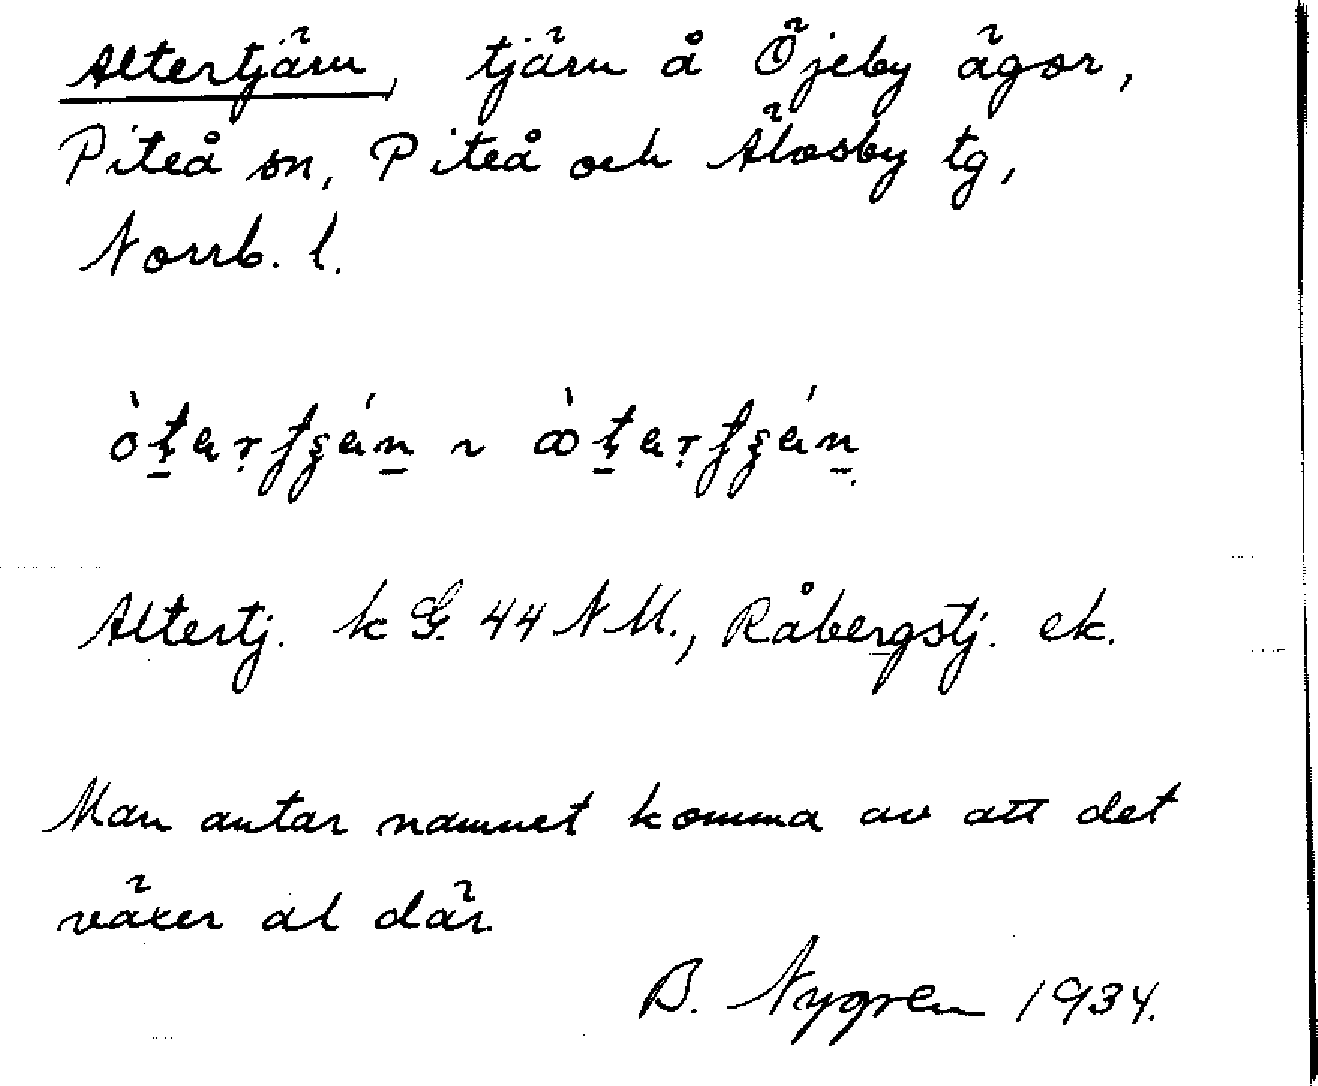 Altertjärn, tjärn å Öjeby ägor,
Piteå sn, Piteå och Älvsby tg,
Norrb. l.
Altertj. k G. 44 NM., Råbergstj. ek.
Man antar namnet komma av att det
växer al där
B. Nygren 1934.